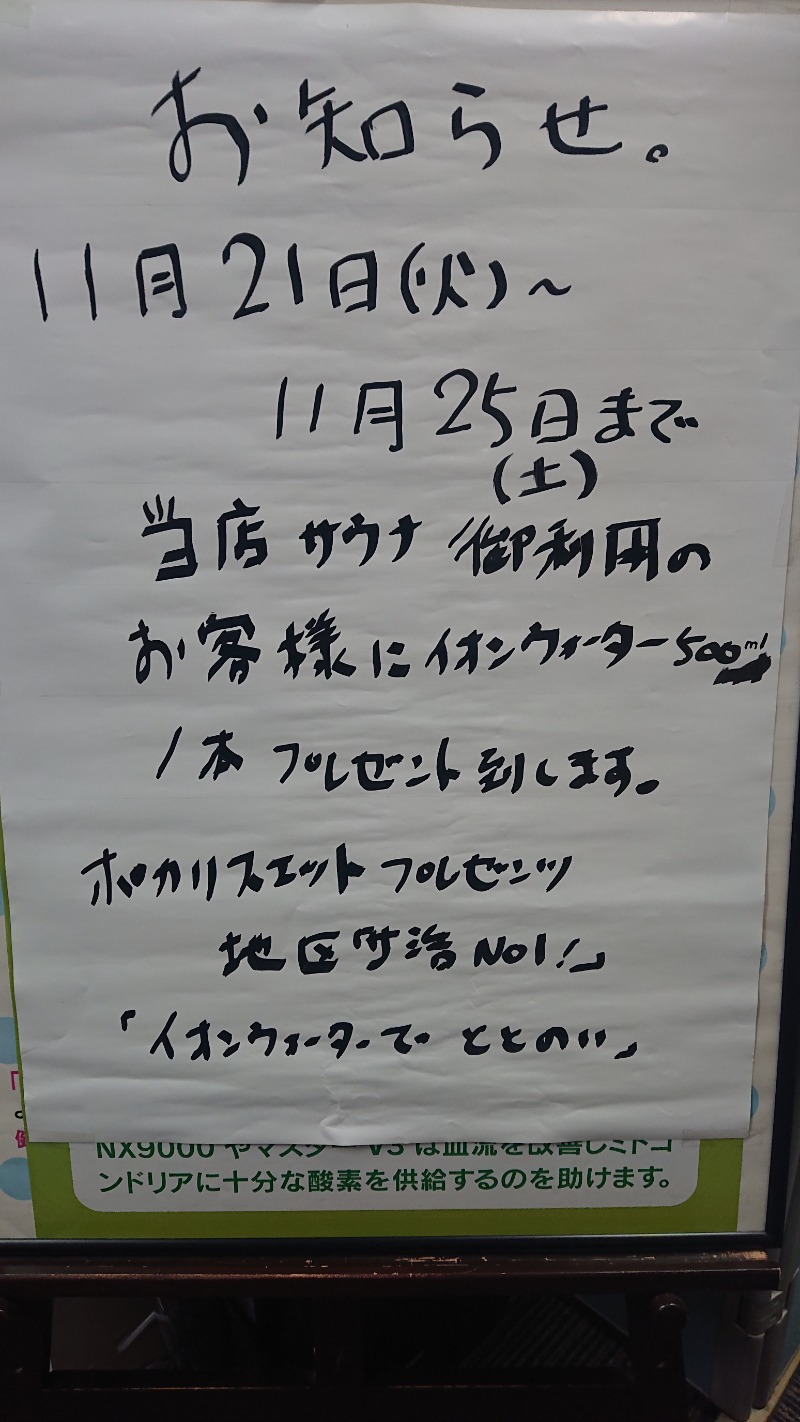 お知らせ。
11月21日(火)～
11月25日まで
(土)
当店サウナ御利用の
お客様にイオンウォーター500ml
1本プレゼント致します。
ポカリスエットプレゼンツ
地区 No1!」
「イオンウォーターで ととのい」
NX9000やマスター V3は血流を改善しミトコ
ンドリアに十分な酸素を供給するのを助けます。